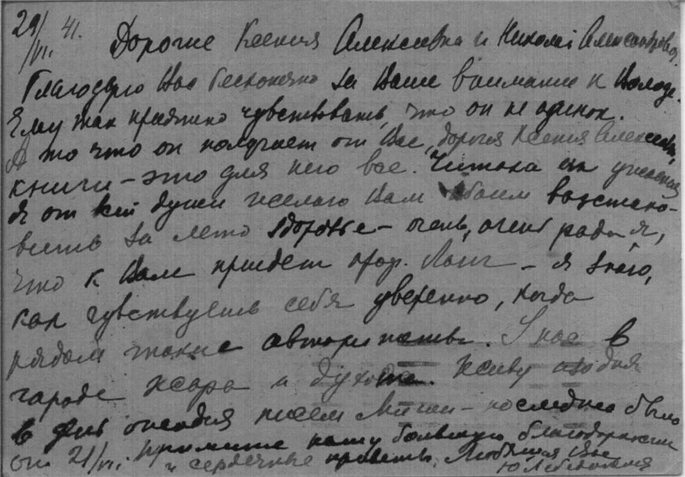 29/VI. 41. Дорогие Ксения Алексеевна и Николай Александрович.
Благодарю Вас бесконечно за Ваше внимание к Володе.
Ему так приятно чувствовать, что он не одинок.
А то что он получает от Вас, дорогая Ксения Алексеевна,
книги – это для него все. Читает он
Я от всей души желаю Вам обоим восстано-
вить за лето здоровье – очень, очень рада я,
что к Вам приедет проф. Ланг – я знаю,
как чувствуешь себя уверенно, когда
рядом такие авторитеты. У нас в
городе жара и духота. Живу
в дня писем Миши – последнее было
от 21/VI. Примите нашу большую благодарность
и сердечные приветы. Любящая Вас